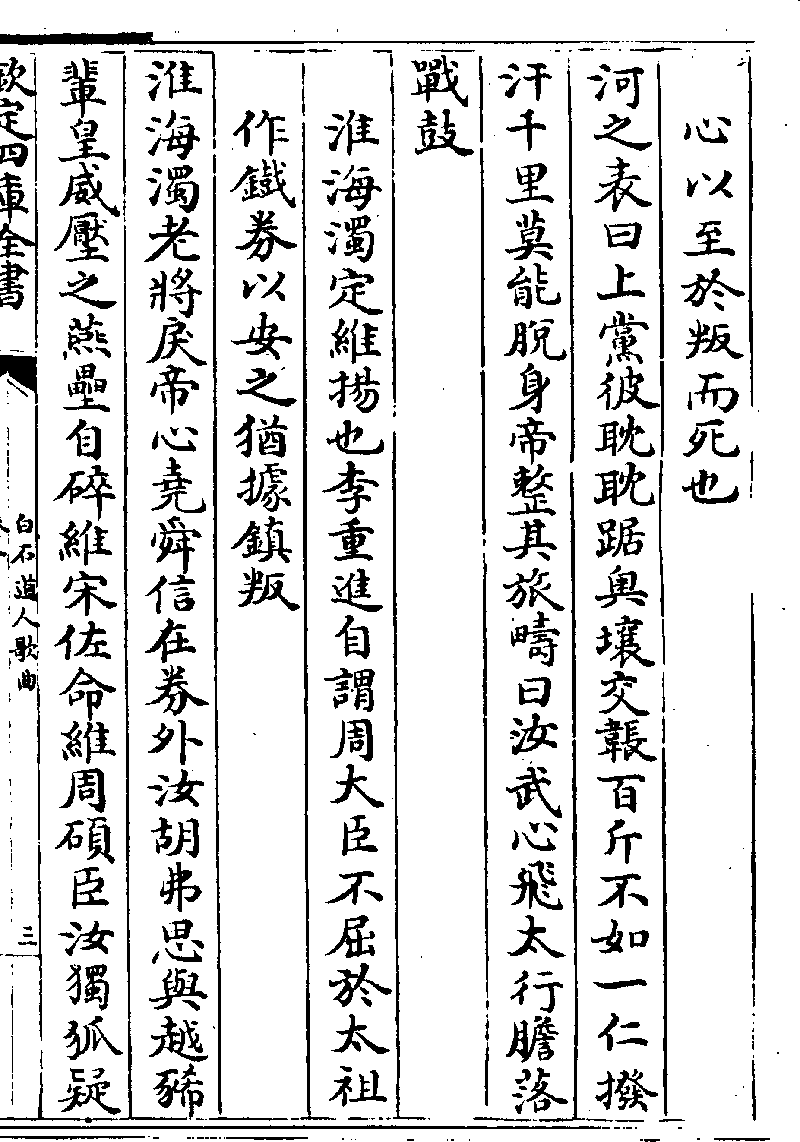 心以至於叛而死也
河之表曰上黨彼耽耽踞奧壤交韔百斤不如一仁撥
汗千里莫能脫身帝整其旅疇曰汝武心飛太行膽落
戰鼓
淮海濁定維揚也李重進自謂周大臣不屈於太祖
作鐵券以安之猶據鎮叛
淮海濁老將戾帝心堯舜信在券外汝胡弗思與越豨
輩皇威壓之燕壘自碎維宋佐命維周碩臣汝獨狐疑
欽定四庫全書
白石道人歌曲
三